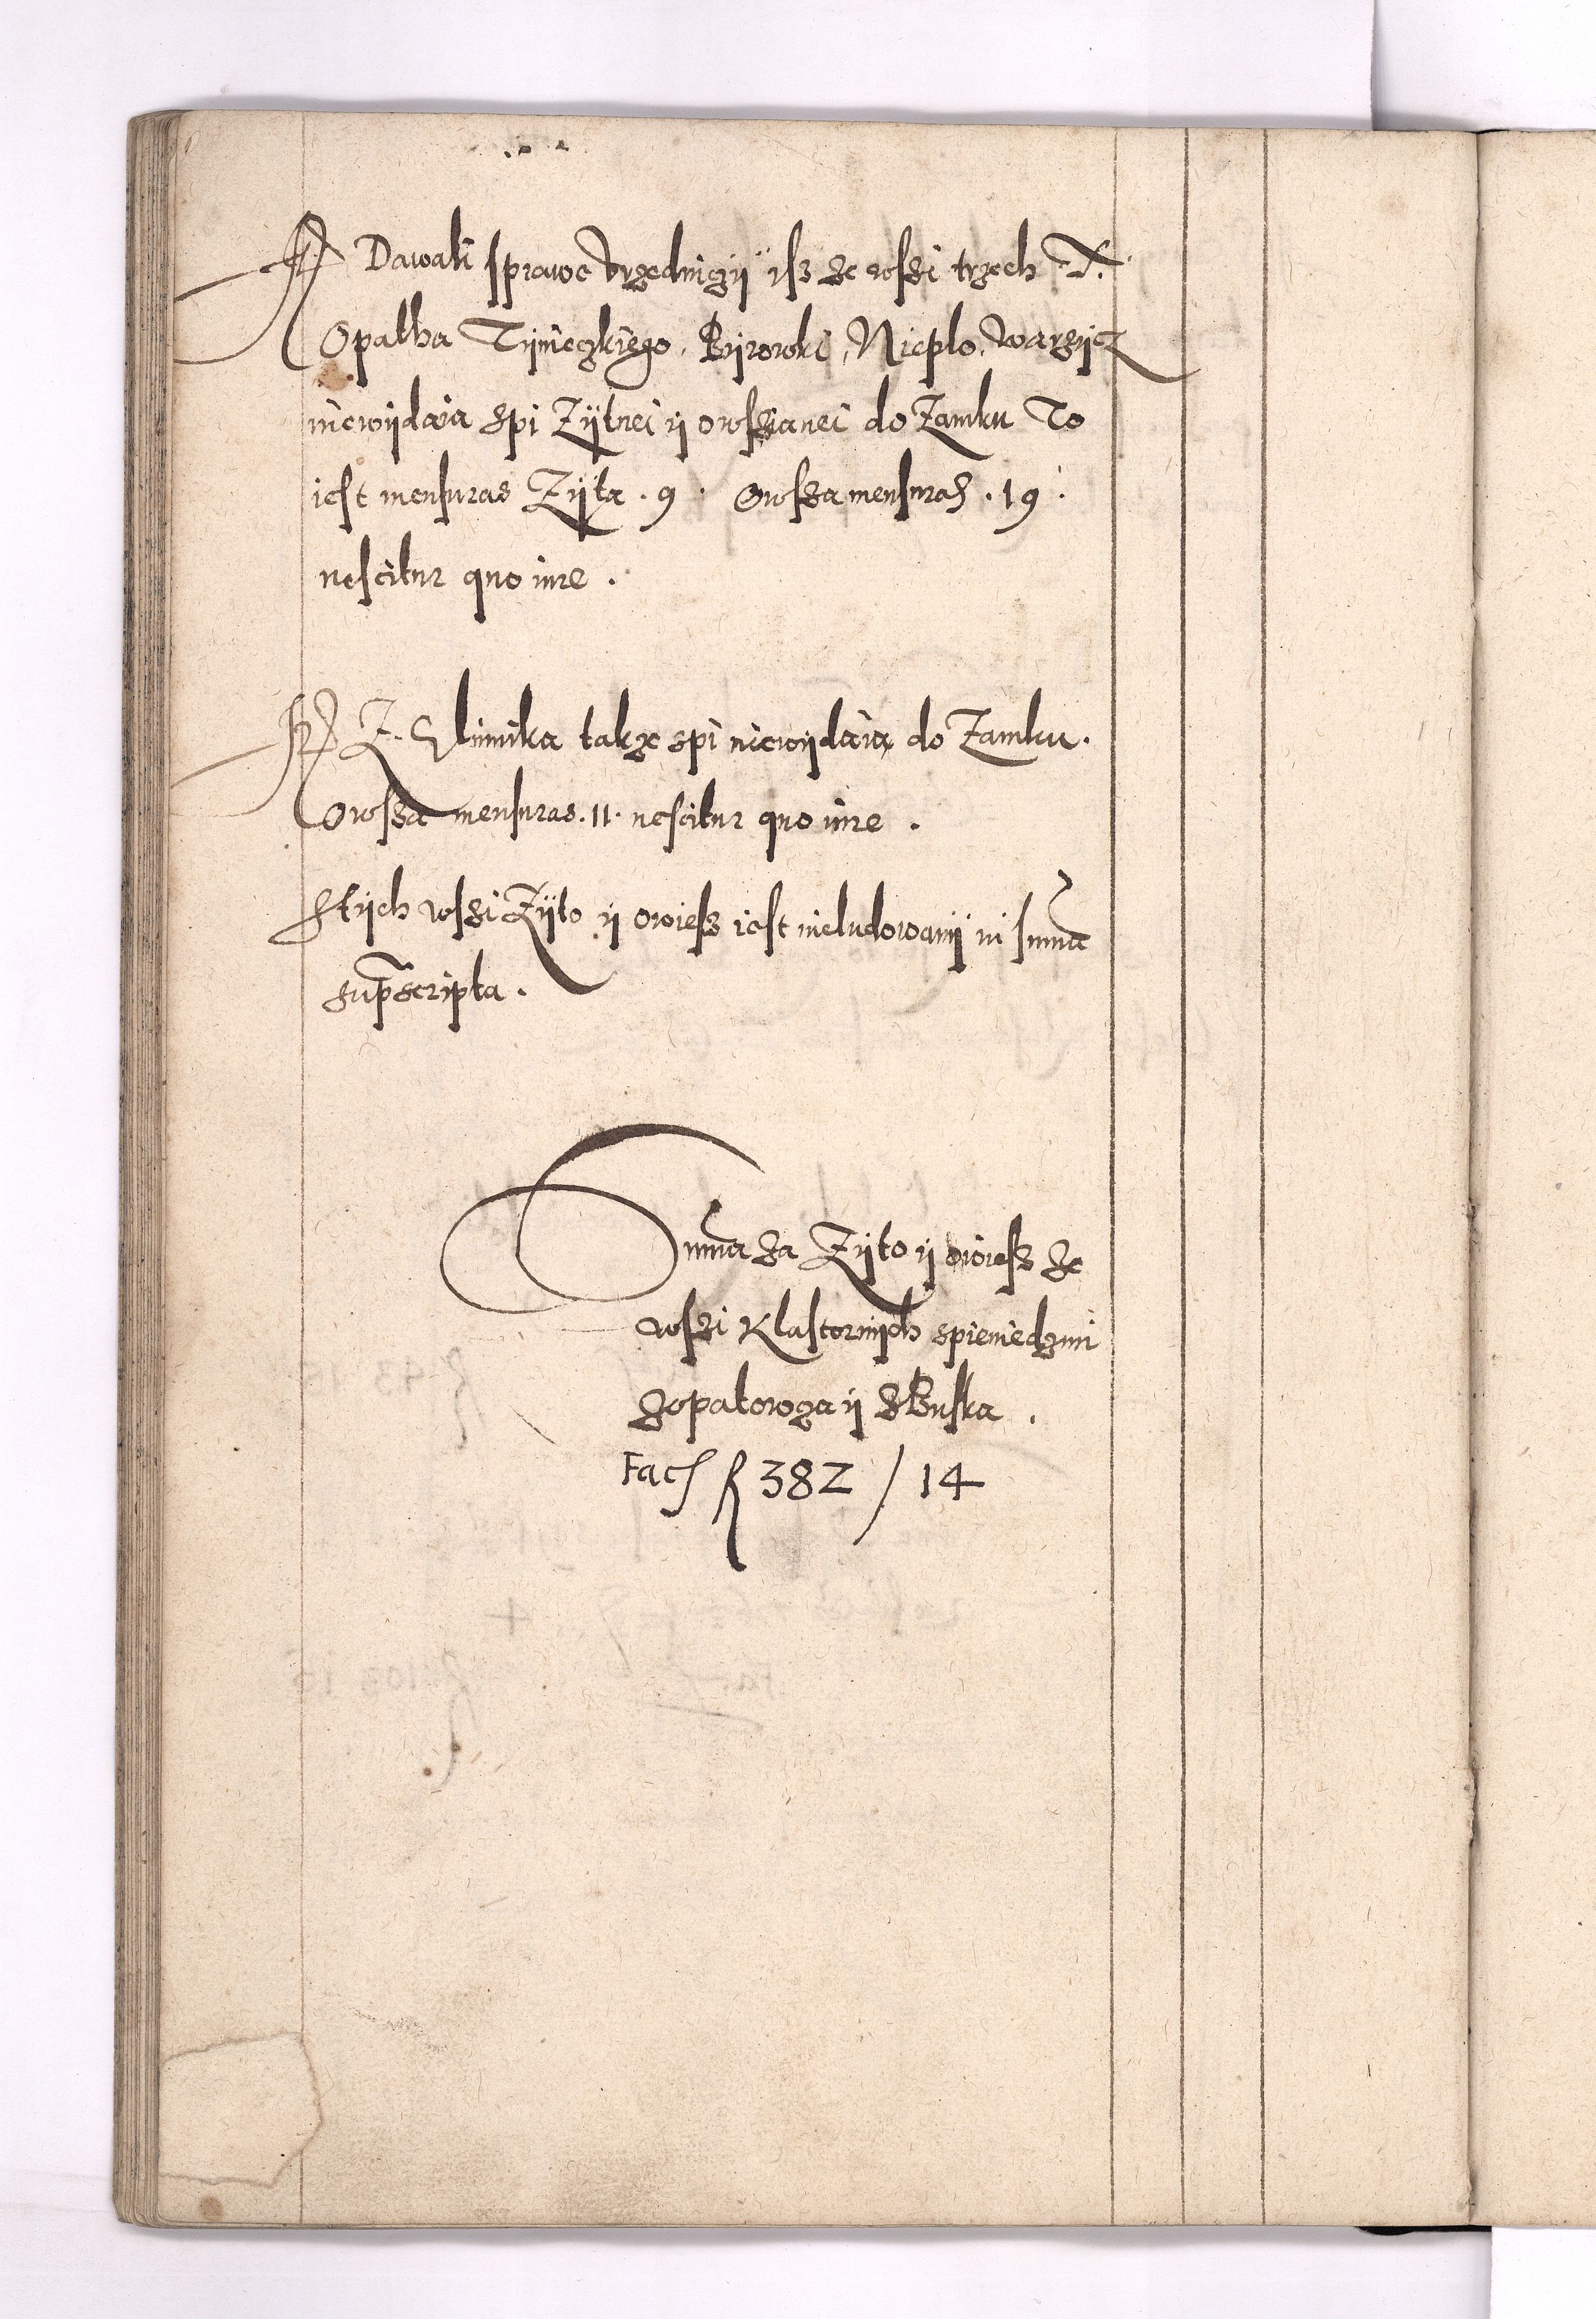 Dawali sprawe Vrzedniczÿ isz ze wsszi trzech X.
Opatha Tÿnieczkiego, Bÿrowki, Nieplo, Wargÿcz
niewÿdaia Spi Zÿtnei ÿ owsszianei do Zamku To
iest mensuras Zÿta . 9 . Owssza mensuras . 19 .
nescitur quo iure .
Z takze spi niewÿdaia do Zamku .
Owssza mensuras . 11 . nescitur quo iure .
Stÿch wsszi Zÿto ÿ owiess iest includowanÿ in summa
suprascripta .
Summa za Zÿto ÿ owiess ze
wsszi Klastornÿch spieniedzmi
zopatowcza ÿ zBuska .
Facs R 382 / 14